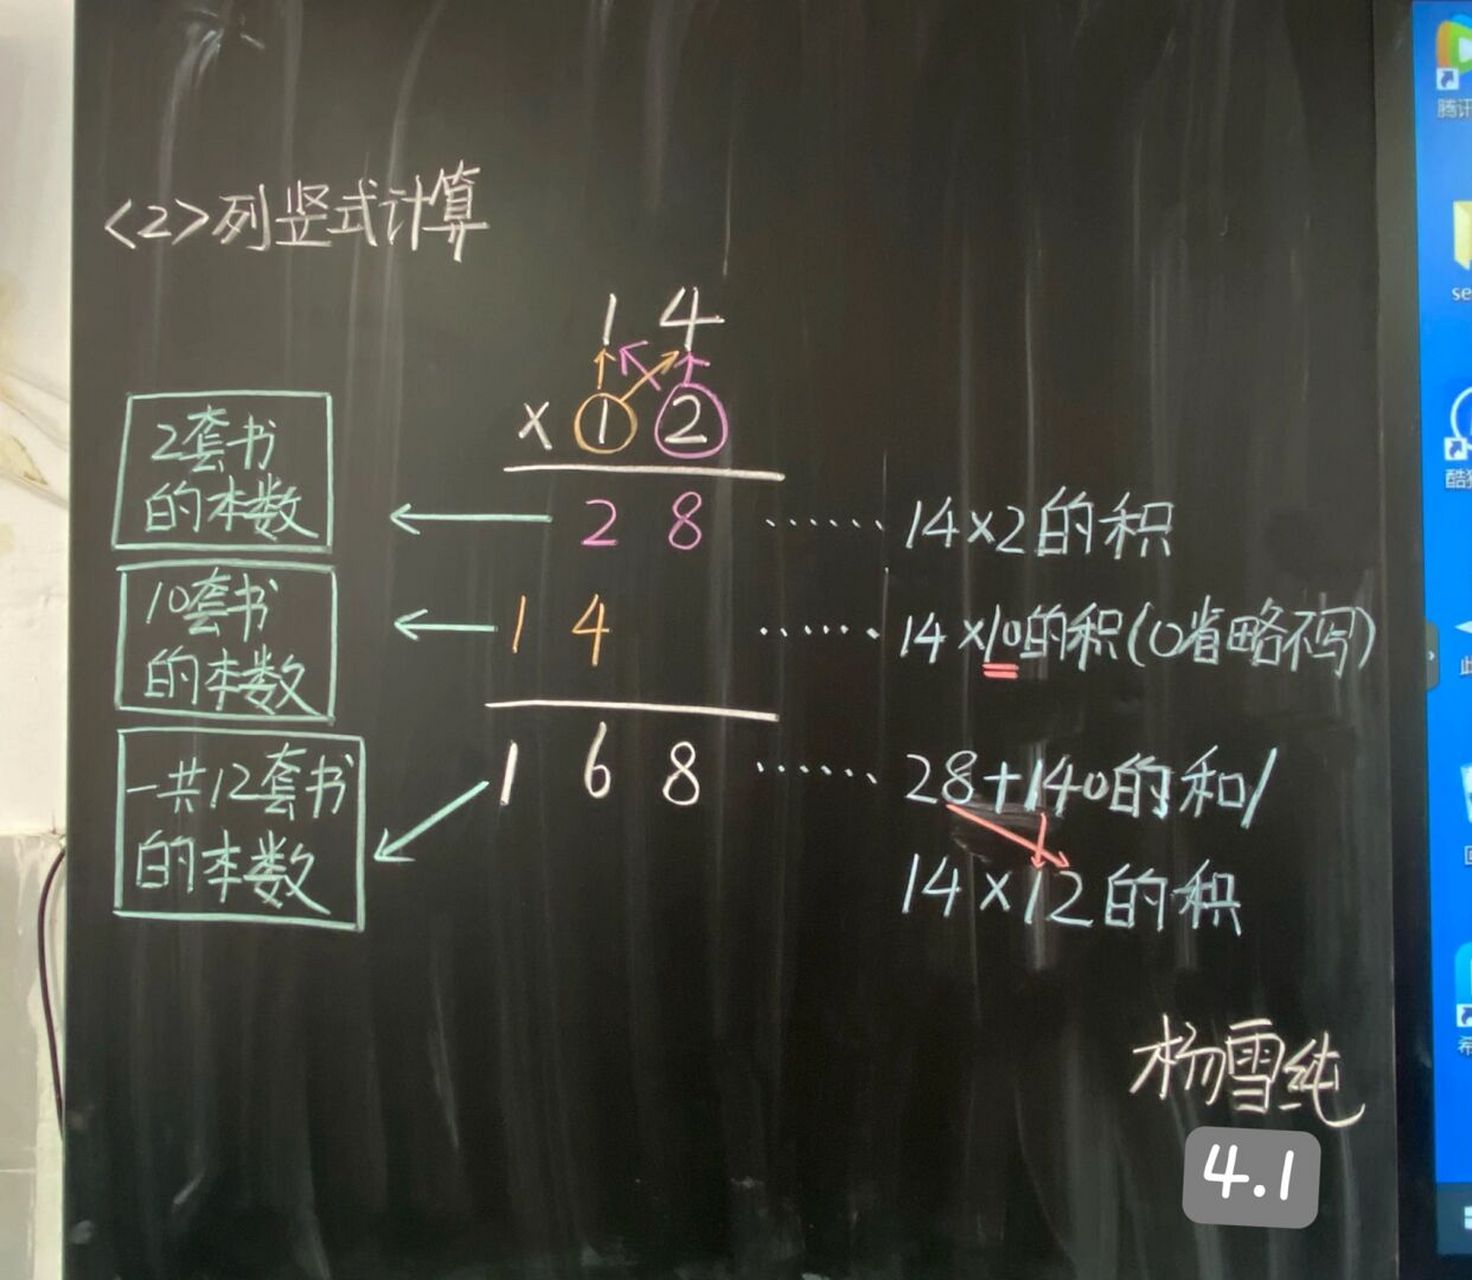 <2>列竖式计算
1 4
× 1 2
2套书
的本数
2 8 ...... 14×2的积
10套书
的本数
1 4 ...... 14×10的积(0省略不写)
一共12套书
的本数
1 6 8 ...... 28+140的和/
14×12的积
杨雪纯
4.1
腾讯
se
酷狗